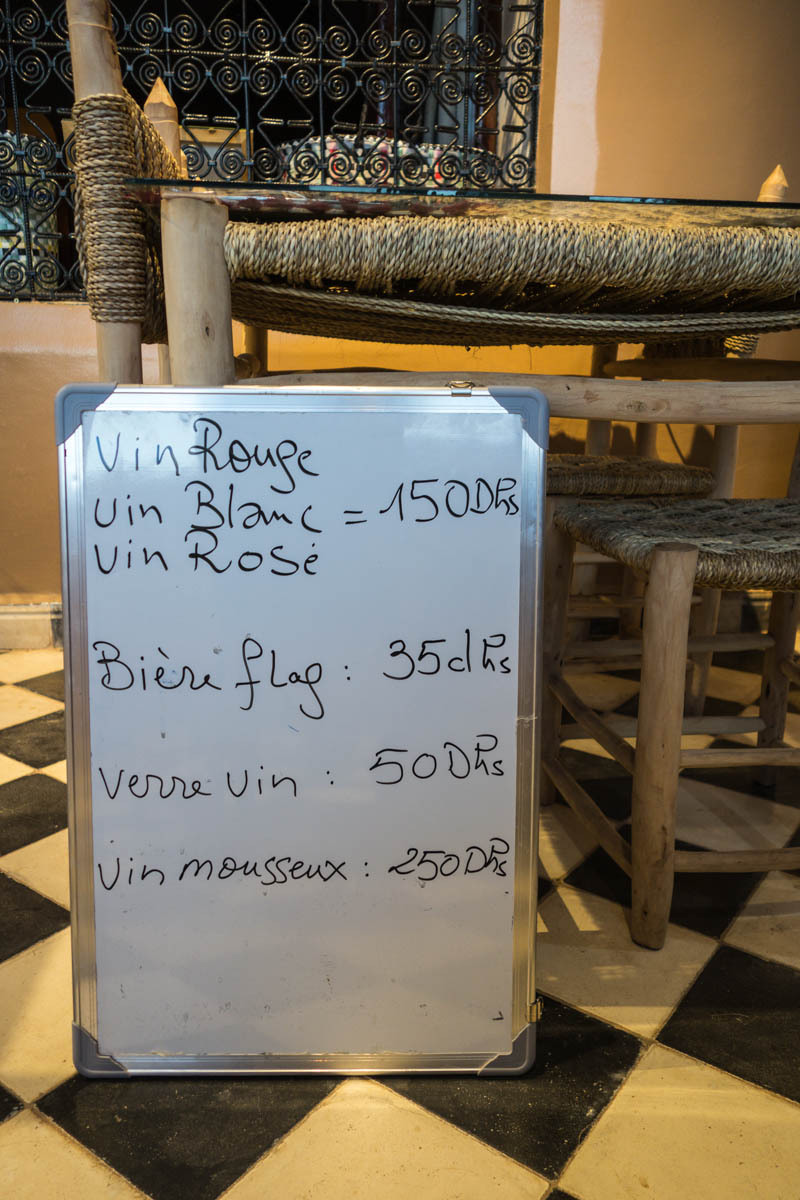 Vin Rouge
Vin Blanc = 150Dhs
Vin Rosé
Bière flag : 35dhs
Verre Vin : 50Dhs
Vin mousseux : 250Dhs